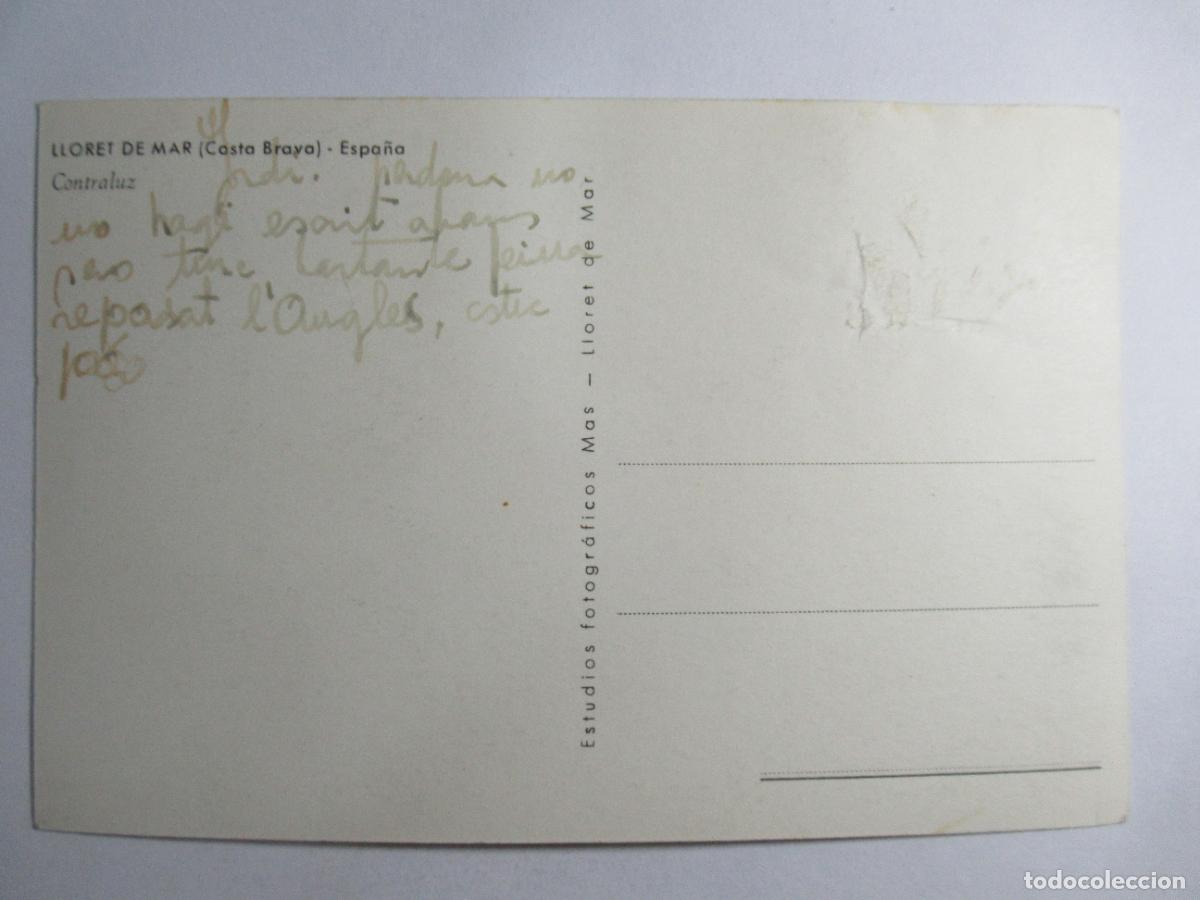 LLORET DE MAR (Costa Brava) - España
Contraluz
Jordi. perdona no
no hagi escrit abans
pero tinc bastante feina
repasat l'Angles, estic
Estudios fotográficos Mas – Lloret de Mar
todocoleccion